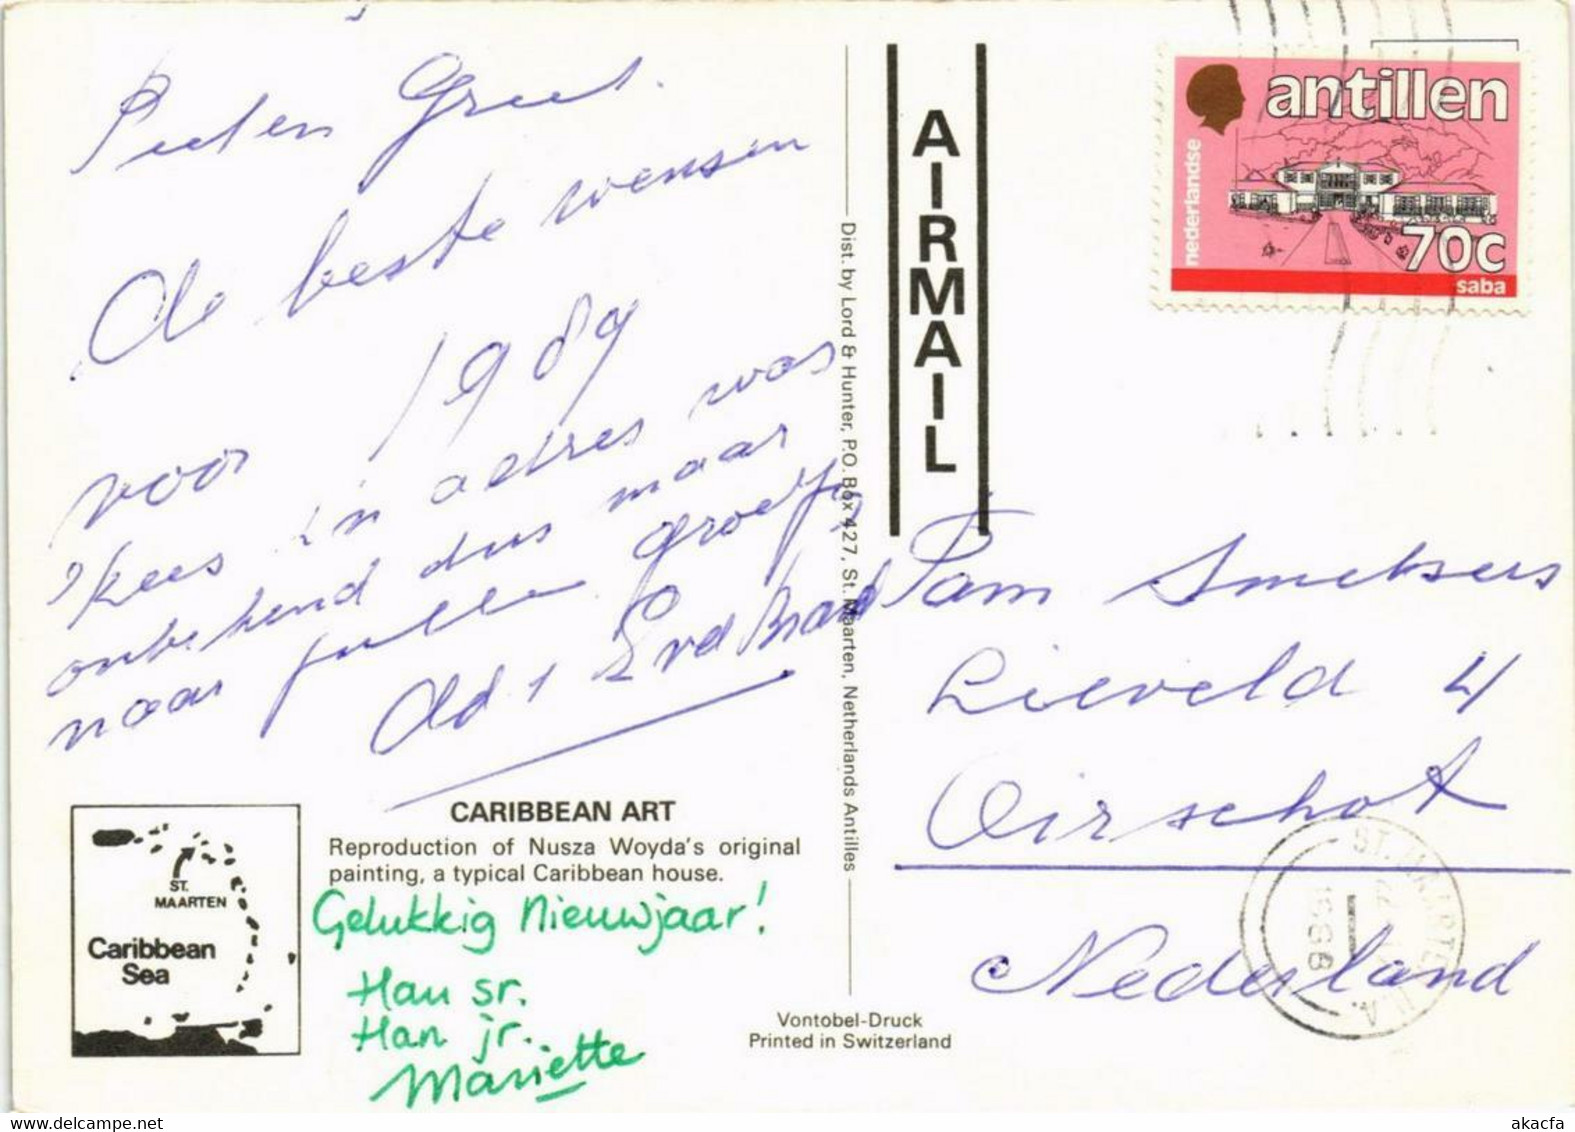 Piet en Greet.
de beste wensen
voor 1989
Kees z'n adres was
onbekend dus maar
naar jullie. groetjes
Ad + Lvd Brand
CARIBBEAN ART
Reproduction of Nusza Woyda's original
painting, a typical Caribbean house.
Gelukkig Nieuwjaar!
Han sr.
Han jr.
Mariette
ST.
MAARTEN
Caribbean
Sea
Dist. by Lord & Hunter, P.O. Box 427, St. Maarten, Netherlands Antilles
Vontobel-Druck
Printed in Switzerland
AIRMAIL
nederlandse
antillen
70c
saba
Fam Smetsers
Lieveld 4
Oirschot
Nederland
ST. MAARTEN N.A.
1988
akacfa
www.delcampe.net